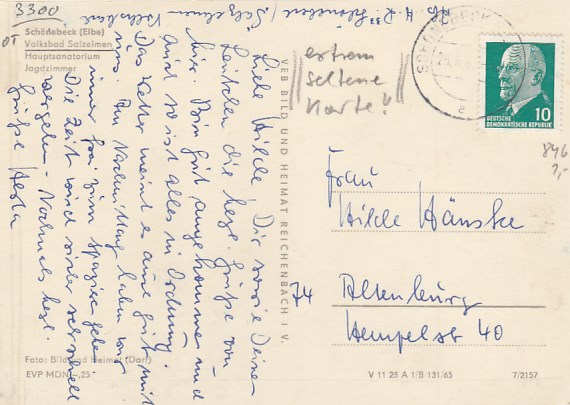 3300
Schönebeck (Elbe)
Volksbad Salzelmen
Hauptsanatorium
Jagdzimmer
extrem
seltene
Karte!
SCHÖNEBECK
10
DEUTSCHE
DEMOKRATISCHE REPUBLIK
VEB BILD UND HEIMAT REICHENBACH I. V.
Liebe Hilde, Dir sowie Deinen
Leutchen die herzl. Grüße von
hier. Bin gut angekommen und
auch so ist alles in Ordnung.
Das Wetter meint es auch gut mit
uns. Am Nachmittag haben wir
immer frei zum spazieren gehen
Die Zeit wird sicher schnell
vergehen. Nochmals herzl.
Grüße Herta
Frau
Hilde Hänske
74 Altenburg
Hempelstr 40
Foto: Bild und Heimat (Darr)
EVP MDN -,25
V 11 28 A 1/B 131/65
7/2157